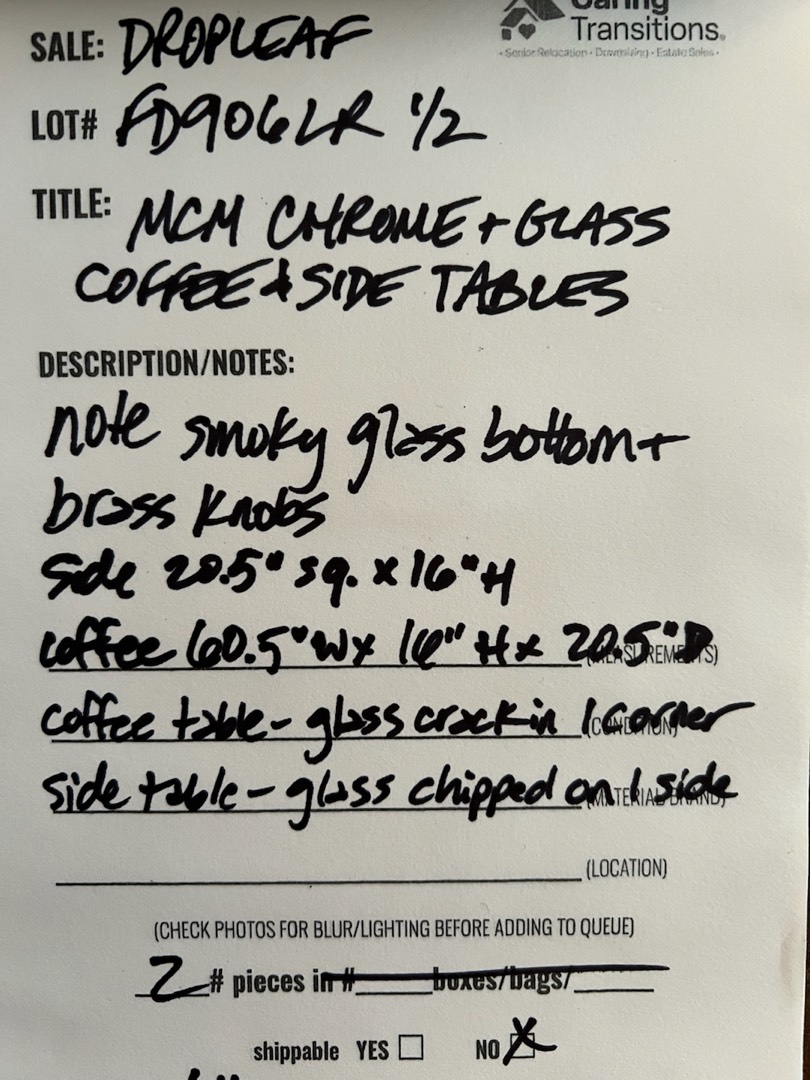 Caring
Transitions.
• Senior Relocation • Downsizing • Estate Sales •
SALE: DROPLEAF
LOT# FD906LR 1/2
TITLE: MCM CHROME + GLASS
COFFEE & SIDE TABLES
DESCRIPTION/NOTES:
note smoky glass bottom +
brass knobs
side 20.5" sq. x 16" H
coffee 60.5" W x 16" H x 20.5" D (MEASUREMENTS)
coffee table - glass crack in 1 corner (CONDITION)
side table - glass chipped on 1 side (MATERIAL/BRAND)
(LOCATION)
(CHECK PHOTOS FOR BLUR/LIGHTING BEFORE ADDING TO QUEUE)
2 # pieces in # boxes/bags/
shippable YES NO X